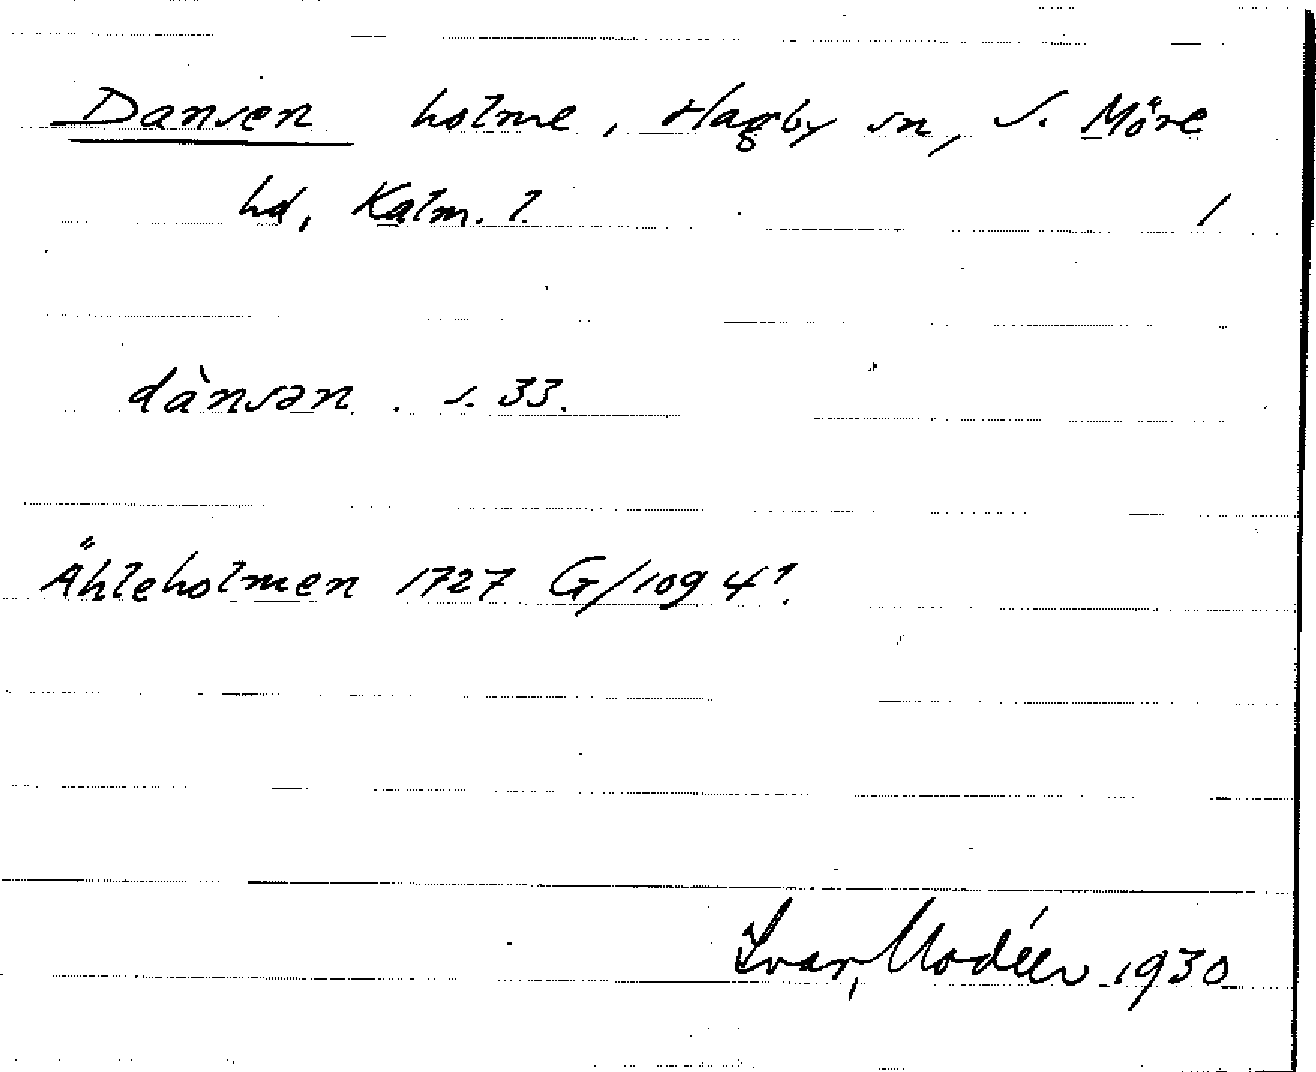 Dansen holme, Hagby sn, S. Möre
hd, Kalm. l. /
dànsən. s. 33.
Åhleholmen 1727 G/109 4¹.
Ivar Modéer 1930